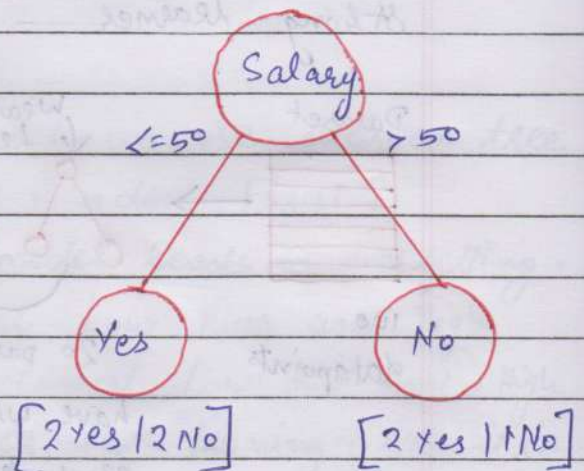 Salary
<=50 >50
Yes No
[2 Yes | 2 No] [2 Yes | 1 No]